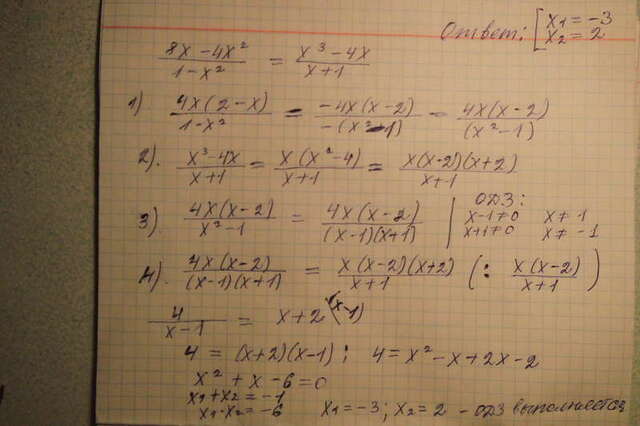 Ответ: [ x₁ = -3
x₂ = 2
(8x - 4x²)/(1 - x²) = (x³ - 4x)/(x + 1)
1) 4x(2 - x)/(1 - x²) = -4x(x - 2)/(-(x² - 1)) = 4x(x - 2)/(x² - 1)
2). (x³ - 4x)/(x + 1) = x(x² - 4)/(x + 1) = x(x - 2)(x + 2)/(x + 1)
3) 4x(x - 2)/(x² - 1) = 4x(x - 2)/((x - 1)(x + 1)) | ОДЗ:
x - 1 ≠ 0 x ≠ 1
x + 1 ≠ 0 x ≠ -1
4). 4x(x - 2)/((x - 1)(x + 1)) = x(x - 2)(x + 2)/(x + 1) (: x(x - 2)/(x + 1))
4/(x - 1) = x + 2 (x - 1)
4 = (x + 2)(x - 1); 4 = x² - x + 2x - 2
x² + x - 6 = 0
x₁ + x₂ = -1
x₁ · x₂ = -6 x₁ = -3; x₂ = 2 - ОДЗ выполняется